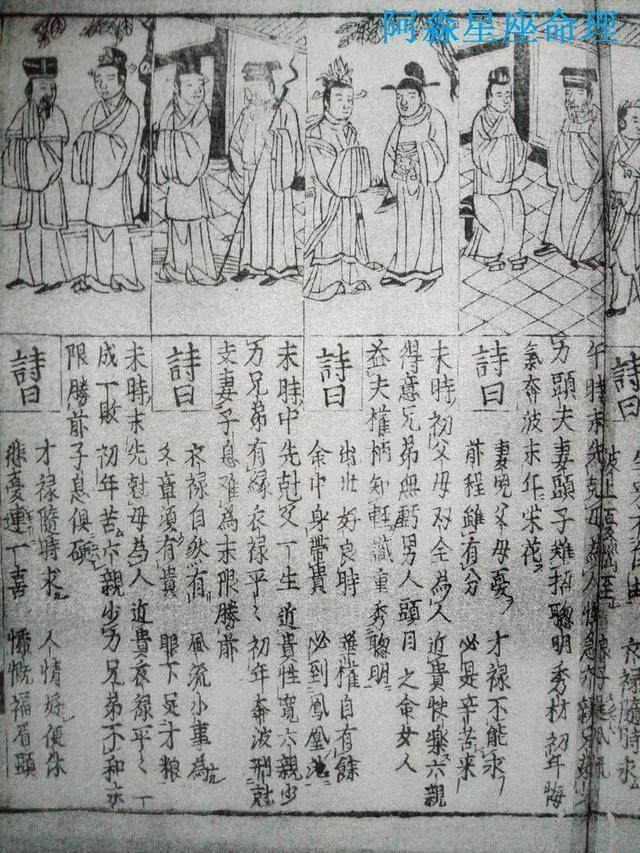 阿森星座命理
詩曰
衣禄隨時求
午時末先尅母為人快急六親兄弟少
力頭夫妻頭子難招聰明秀枝初年晦
氣奔波末年榮花
詩曰
妻兒父母憂 才禄不能求
前程雖有分 必是辛苦来
未時初父母双全為人近貴快樂六親
得意兄弟無虧男人頭目之命女人
益夫權柄知輕識重秀聰明
詩曰
出壮好良時 權自有餘
命中身帶貴 必到鳳凰池
未時中先尅父一生近貴性寬六親少
力兄弟有緣衣禄平〻初年奔波刑尅
夫妻子息难為末限勝前
詩曰
衣禄自然有 風流小事為
文章須有貴 眼下足才粮
未時末先尅母為人近貴衣禄平〻一
成一敗初年苦六親少力兄弟不和末
限勝前子息俱硬
詩曰
才禄隨時求 人情好便休
悲憂連一喜 慷慨福眉頭